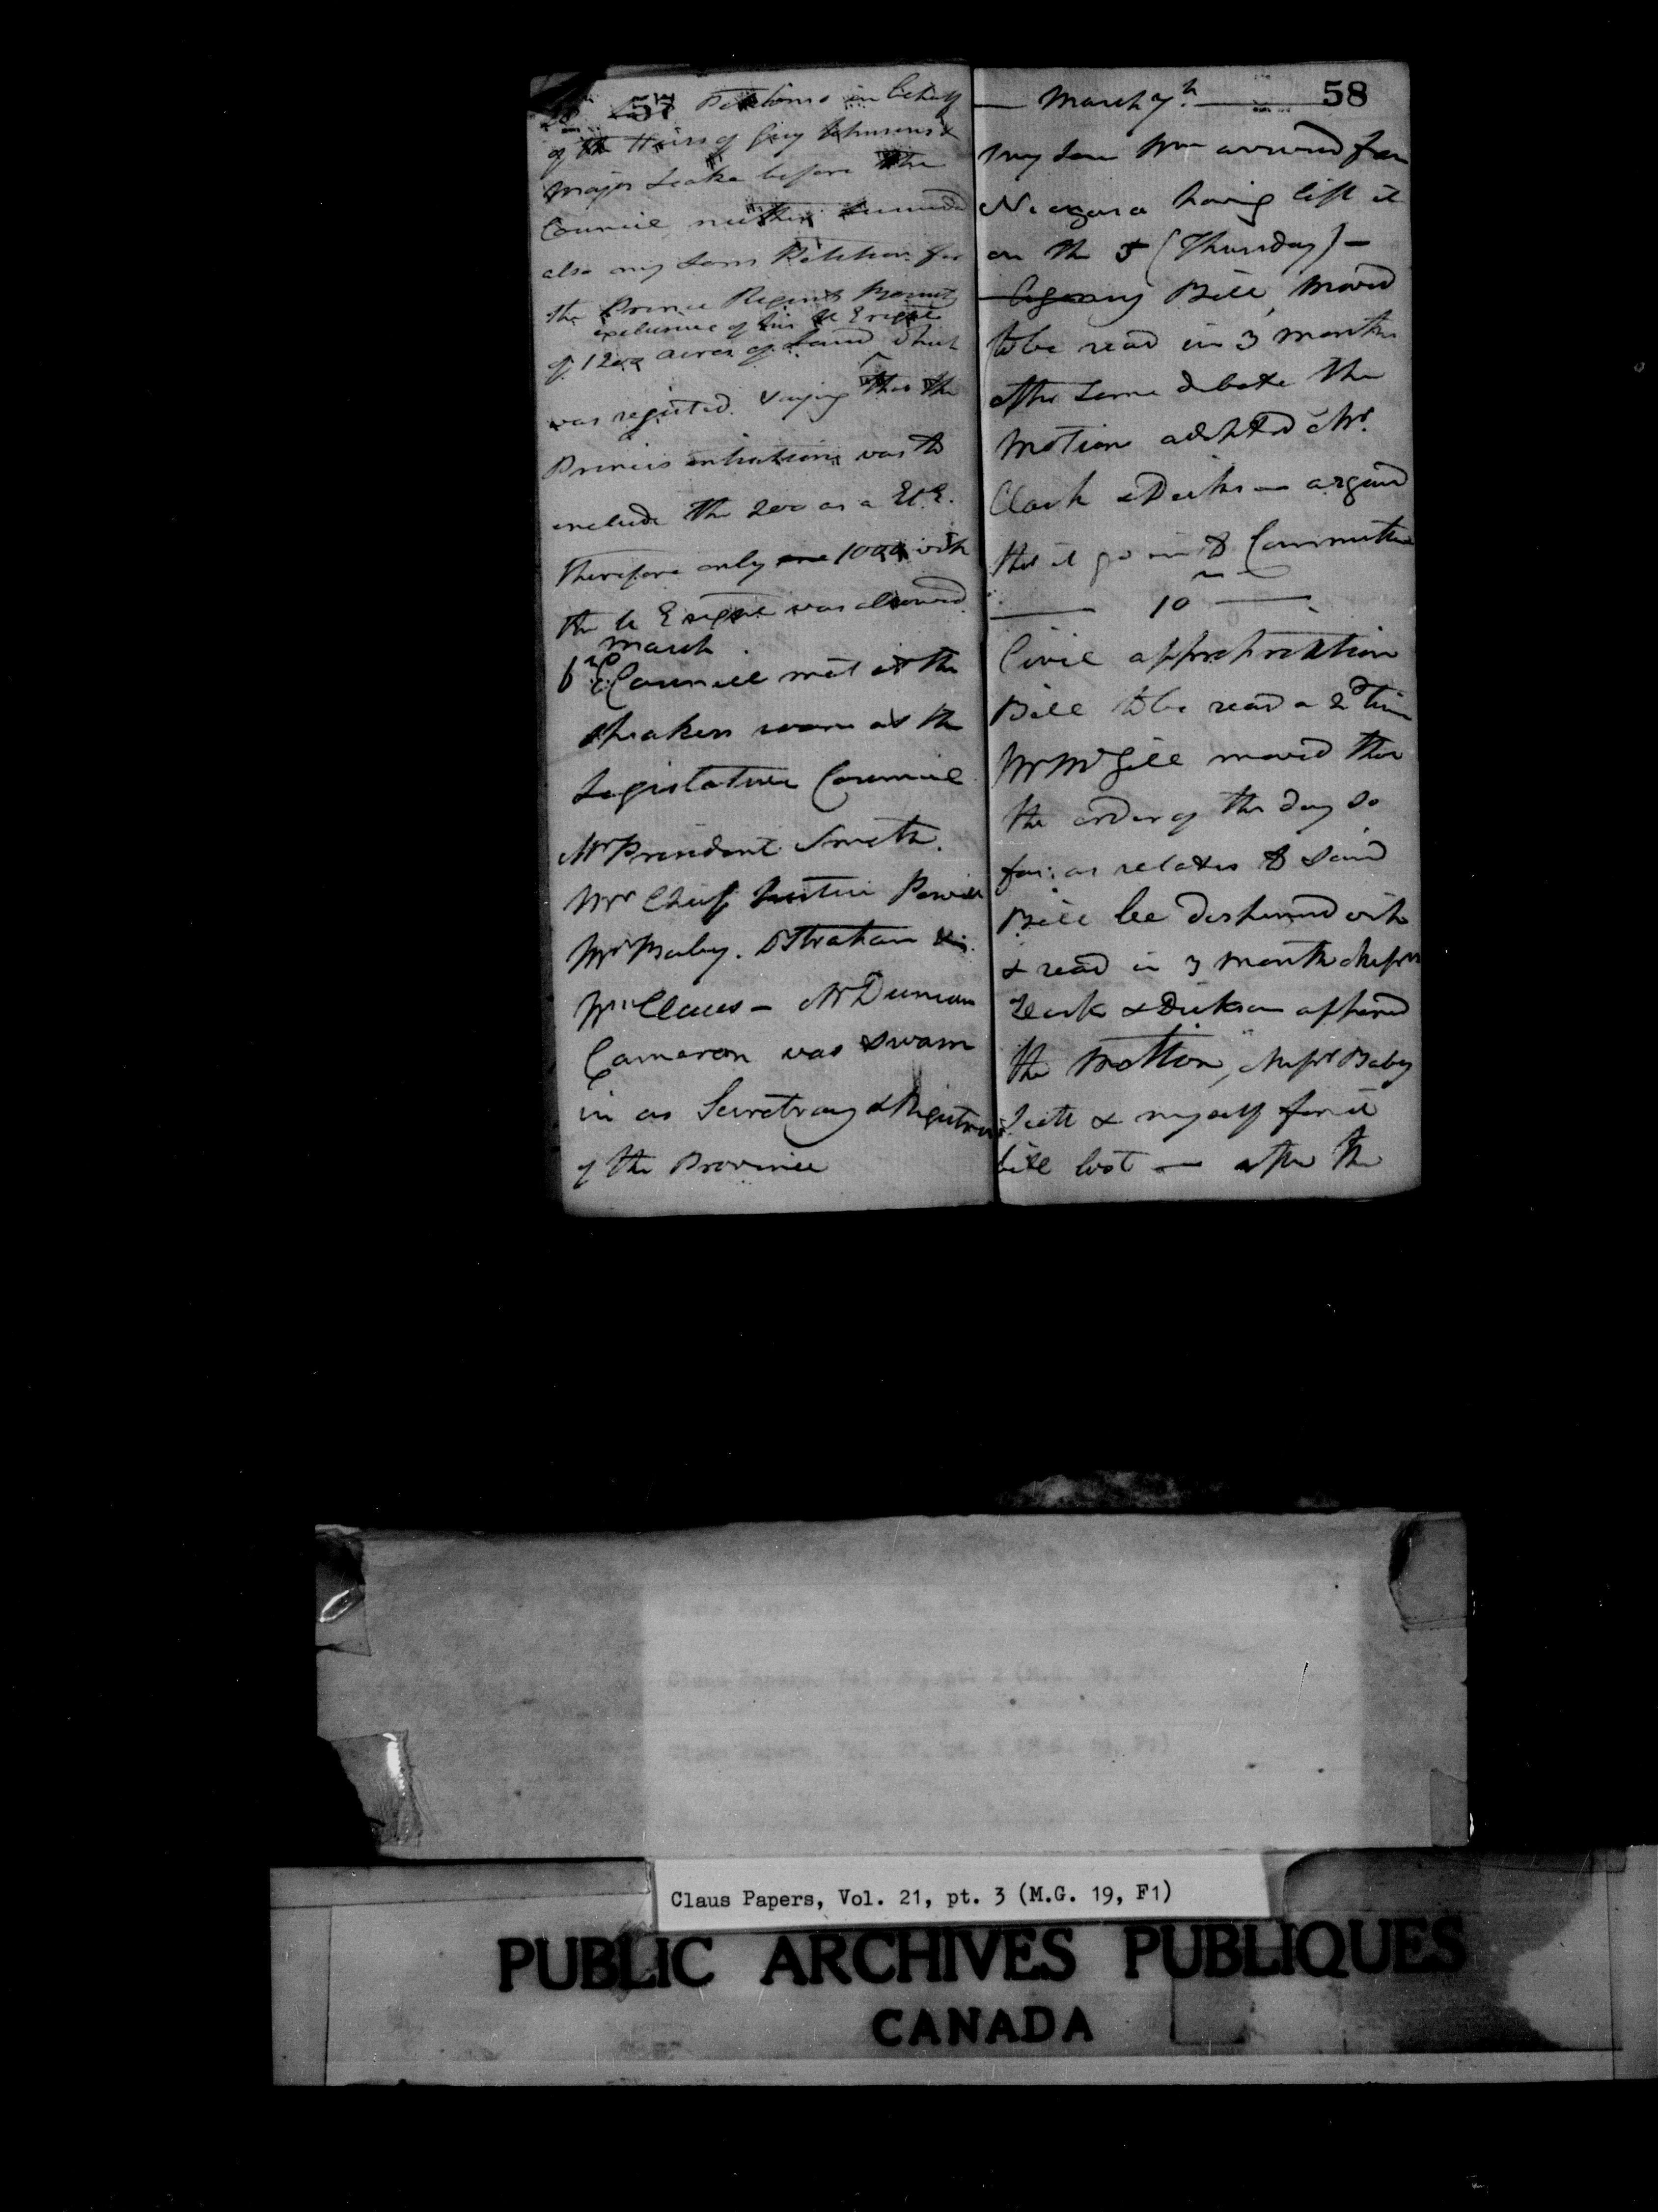 57
Petitions in behalf
of the Heirs of Guy Johnson &
Major Leake before the
Council, neither
also my Sons Petition for
the Prince Regents Bounty
exclusive of his U E right
of 1200 acres of Land which
was rejected. saying that the
Princes intentions was to
include the 200 as a U.E.
Therefore only 1000 with
the U E right was allowed
March
6 Council met at the
speakers room at the
Legislative Council
Mr President Smith.
Mr Chief Justice Powell
Mr Baby. Dr Strahan &
Wm Claus — Mr Duncan
Cameron was sworn
in as Secretary & Registrar
of the Province
58
March 7th
my son Wm arrived from
Niagara having left it
on the 5 (Thursday) —
Agency Bill, moved
to be read in 3 months
after some debate the
motion adopted Mr.
Clark & Dickson argued
that it go into Committee
10
Civil appropriation
Bill to be read a 2d time
Mr McGill moved that
the order of the day so
far as relates to said
Bill be dispensed with
& read in 3 month Messrs
Clark & Dickson opposed
the motion, Messrs Baby
Scott & myself for it
bill lost — after the
Claus Papers, Vol. 21, pt. 3 (M.G. 19, F1)
PUBLIC ARCHIVES PUBLIQUES
CANADA